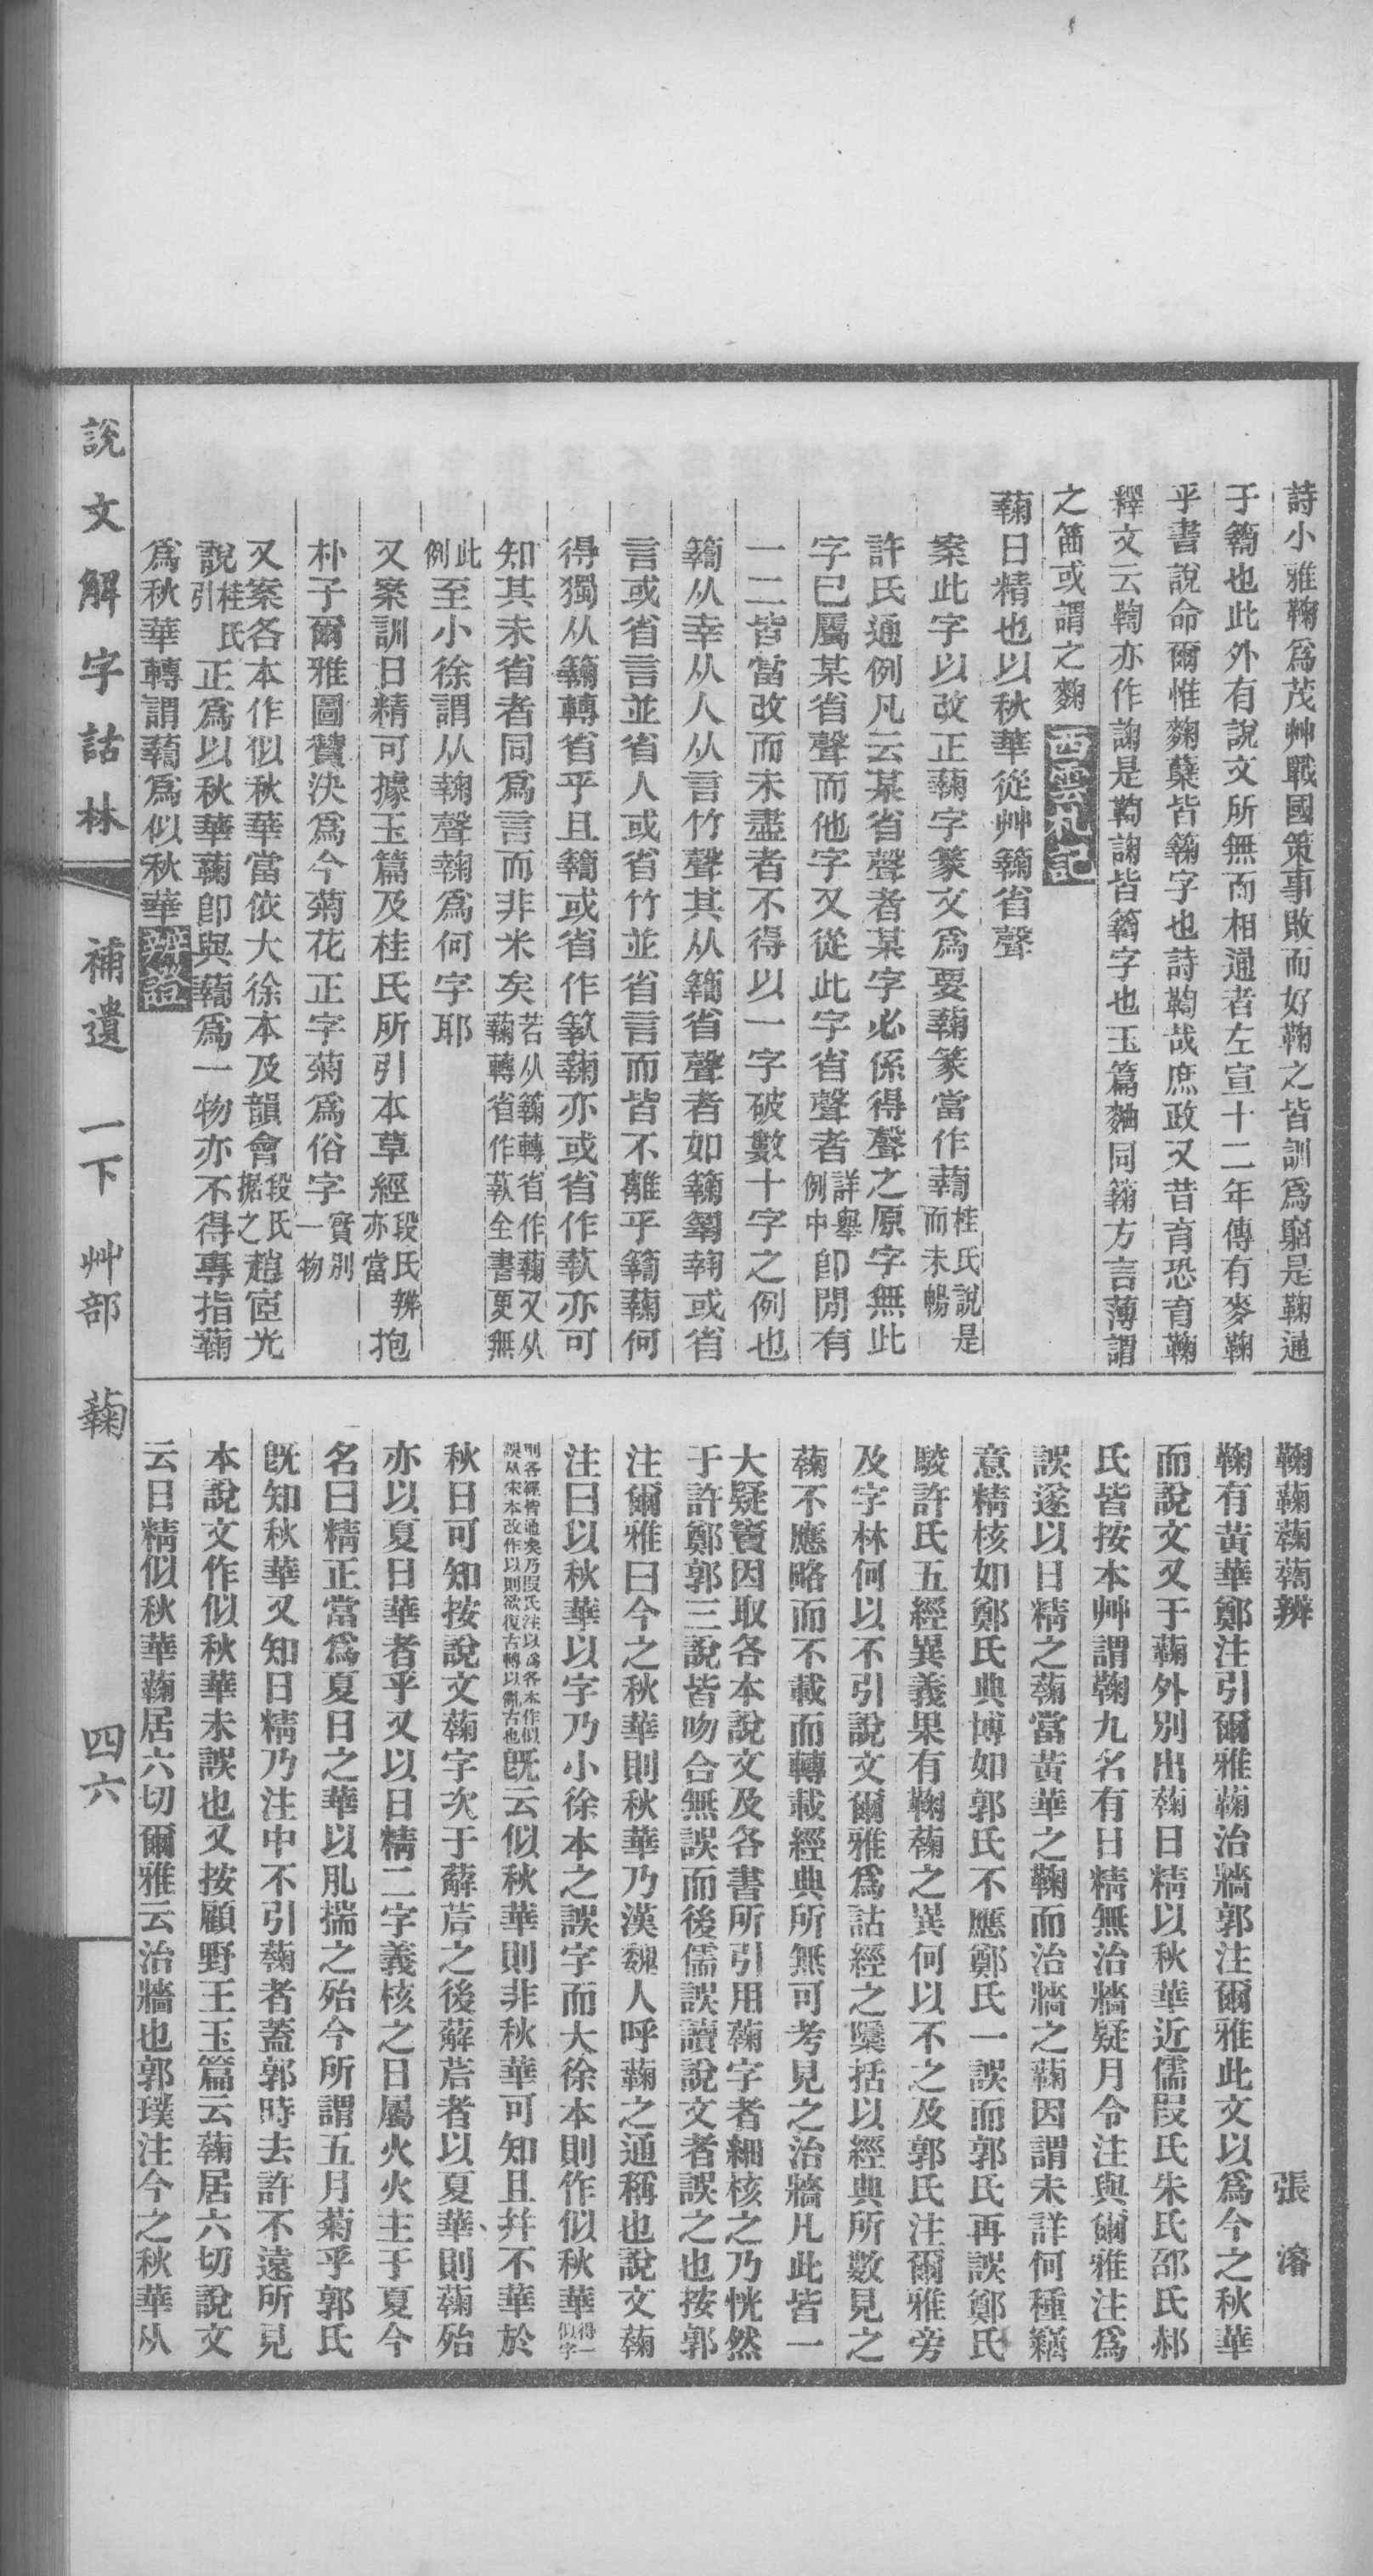 詩小雅鞠爲茂艸戰國策事敗而好鞠之皆訓爲窮是鞠通
于𥷚也此外有說文所無而相通者左宣十二年傳有麥鞠
乎書說命爾惟麴櫱皆𥶶字也詩鞫哉庶政又昔育恐育鞠
釋文云鞫亦作諊是鞫諊皆𥷚字也玉篇麯同𥶶方言薄謂
之䒼或謂之麴 西雲札記
蘜日精也以秋華從艸𥷚省聲
案此字以改正蘜字篆文爲要蘜篆當作䕮桂氏說是而未暢
許氏通例凡云某省聲者某字必係得聲之原字無此
字已屬某省聲而他字又從此字省聲者詳舉例中卽閒有
一二皆當改而未盡者不得以一字破數十字之例也
𥷚从幸从人从言竹聲其从𥷚省聲者如或省
言或省言並省人或省竹並省言而皆不離乎𥷚蘜何
得獨从𥶶轉省乎且𥷚或省作蘜亦或省作亦可
知其未省者同爲言而非米矣若从𥶶轉省作蘜又从蘜轉省作全書更無
此例至小徐謂从聲爲何字耶
又案訓日精可據玉篇及桂氏所引本草經段氏辨亦當抱
朴子爾雅圖贊決爲今菊花正字菊爲俗字實別一物
又案各本作似秋華當依大徐本及韻會段氏据之趙宧光
說桂氏引正爲以秋華蘜卽與䕮爲一物亦不得專指蘜
爲秋華轉謂䕮爲似秋華
鞠蘜蘜䕮辨 張溶
鞠有黃華鄭注引爾雅蘜治牆郭注爾雅此文以爲今之秋華
而說文又于蘜外別出蘜日精以秋華近儒段氏朱氏邵氏郝
氏皆按本艸謂鞠九名有日精無治牆疑月令注與爾雅注爲
誤遂以日精之蘜當黃華之鞠而治牆之蘜因謂未詳何種竊
意精核如鄭氏典博如郭氏不應鄭氏一誤而郭氏再誤鄭氏
駮許氏五經異義果有鞠蘜之異何以不之及郭氏注爾雅旁
及字林何以不引說文爾雅爲詁經之檃括以經典所數見之
蘜不應略而不載而轉載經典所無可考見之治牆凡此皆一
大疑竇因取各本說文及各書所引用蘜字者細核之乃恍然
于許鄭郭三說皆吻合無誤而後儒誤讀說文者誤之也按郭
注爾雅曰今之秋華則秋華乃漢魏人呼蘜之通稱也說文蘜
注曰以秋華以字乃小徐本之誤字而大徐本則作似秋華得一似字
則各經皆通矣乃段氏注以爲各本作似誤从宋本改作以則欲復古轉以亂古也旣云似秋華則非秋華可知且幷不華於
秋日可知按說文蘜字次于薢茩之後薢茩者以夏華則蘜殆
亦以夏日華者乎又以日精二字義核之日屬火火主于夏今
名曰精正當爲夏日之華以肊揣之殆今所謂五月菊乎郭氏
旣知秋華又知日精乃注中不引蘜者蓋郭時去許不遠所見
本說文作似秋華未誤也又按顧野王玉篇云蘜居六切說文
云日精似秋華蘜居六切爾雅云治牆也郭璞注今之秋華从
說文解字詁林 補遺 一下 艸部 蘜 四六